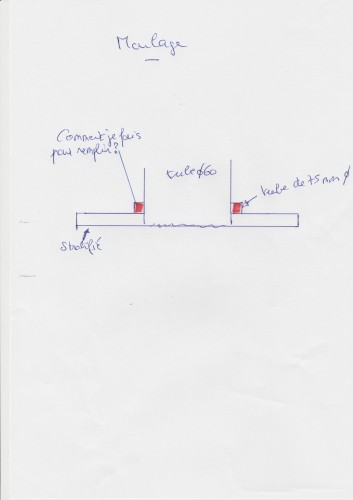 Moulage
Comment je fais
pour remplir?
tube Ø60
tube de 75 mm Ø
Stratifié